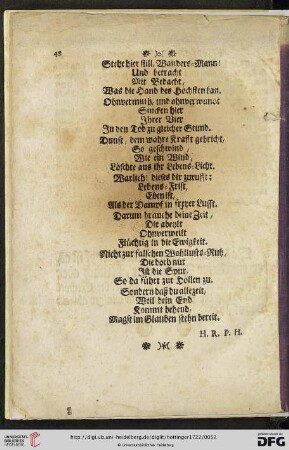 48
Stehe hier still, Wanders-Mann!
Und betracht
Mit Bedacht,
Was die Hand des Höchsten kan.
Ohnvermuth, und ohnverwundt
Sincken hier
Ihrer Vier
In den Tod zu gleicher Stund.
Dunst, dem wahre Krafft gebricht,
So geschwind,
Wie ein Wind,
Löschte aus ihr Lebens-Licht.
Warlich! dieses dir zurufft:
Lebens-Frist,
Eben ist,
Als der Dampf in freyer Lufft.
Darum brauche deine Zeit,
Die abeylt
Ohnverweilt
Flüchtig in die Ewigkeit.
Nicht zur falschen Wohllusts-Ruh,
Die doch nur
Ist die Spur,
So da führt zur Höllen zu.
Sondern daß du allezeit,
Weil dein End
Kommt behend,
Magst im Glauben stehn bereit.
H. R. P. H.
http://digi.ub.uni-heidelberg.de/diglit/hottinger1722/0052
UNIVERSITÄTS-
BIBLIOTHEK
HEIDELBERG
© Universitätsbibliothek Heidelberg
gefördert durch die
DFG